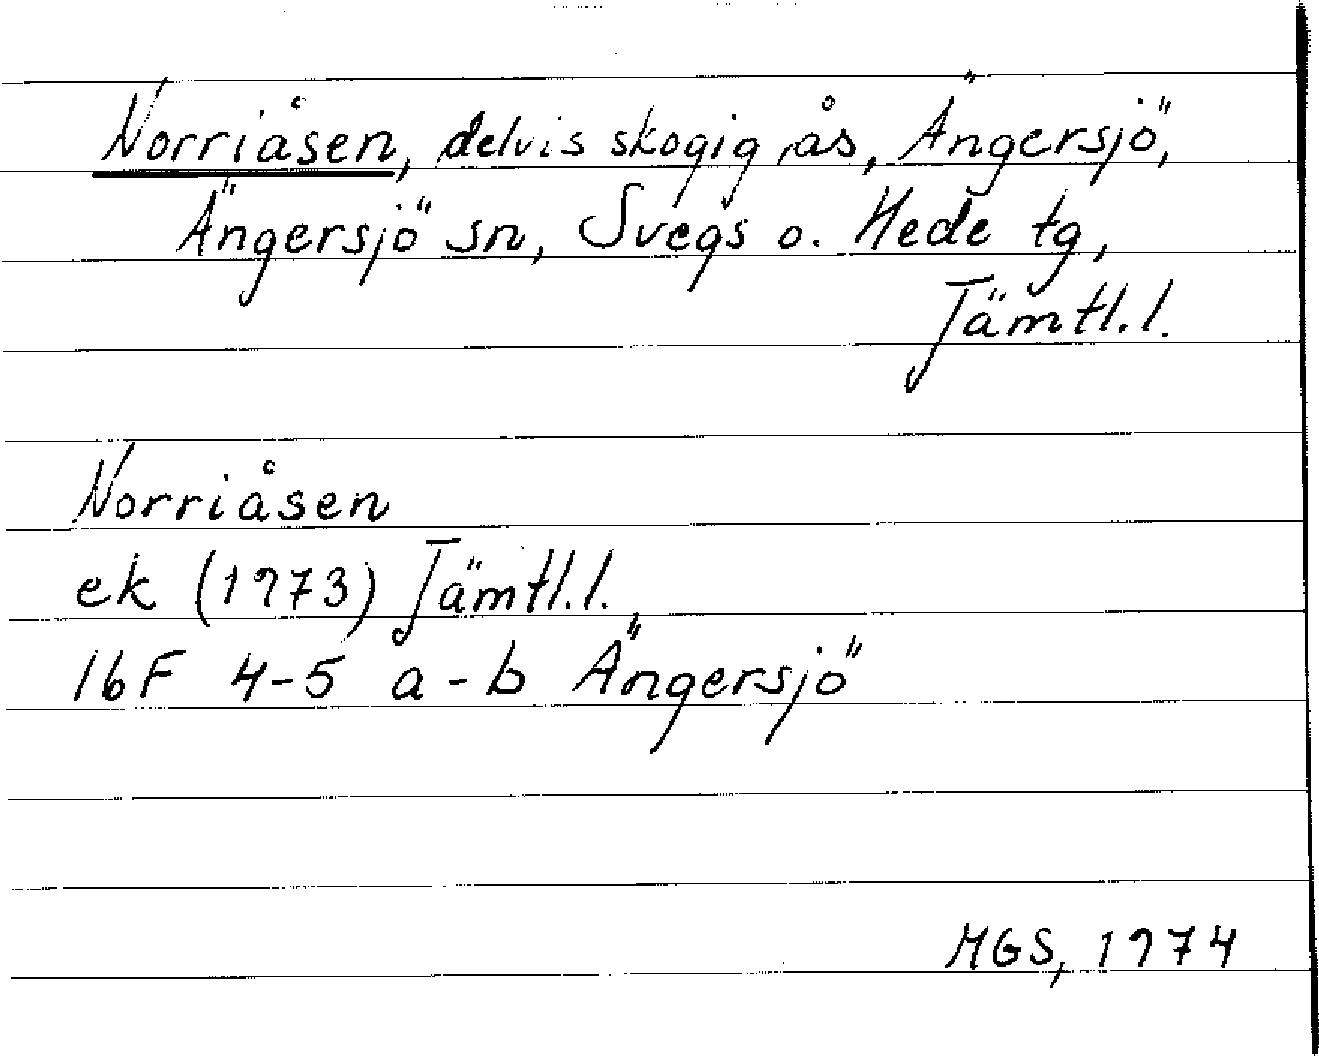 Norriåsen, delvis skogig ås, Ängersjö,
Ängersjö sn, Svegs o. Hede tg,
Jämtl.l.
Norriåsen
ek (1973) Jämtl.l.
16F 4-5 a-b Ängersjö
MGS, 1974